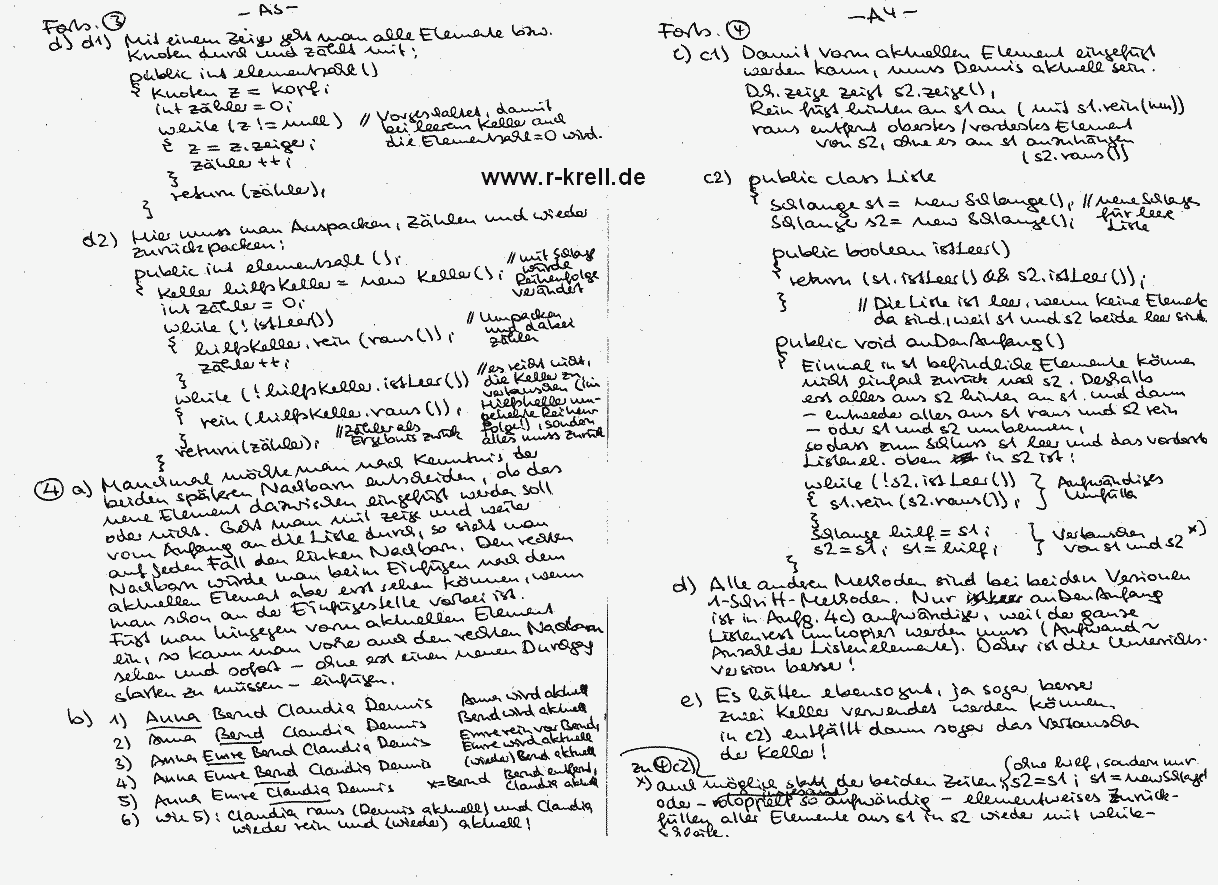 - A3 -
Forts. ③
d) d1) Mit einem Zeiger geht man alle Elemente bzw.
Knoten durch und zählt mit:
public int elementzahl ()
{ Knoten z = kopf;
int zähler = 0;
while (z != null) // Vorgeschaltet, damit
{ z = z.zeiger; bei leerem Keller auch
zähler ++; die Elementzahl=0 wird.
}
return (zähler);
}
d2) Hier muss man Auspacken, Zählen und wieder
zurückpacken:
public int elementzahl ();
{ Keller hilfsKeller = new Keller(); // mit Schlange
int zähler = 0; würde
while (! istLeer()) Reihenfolge
verändert
{ hilfsKeller.rein (raus()); // Umpacken
zähler ++; und dabei
zählen
}
while (! hilfsKeller.istLeer()) // es reicht nicht,
{ rein (hilfsKeller.raus()); die Keller zu
vertauschen (im
Hilfskeller um-
gekehrte Reihen-
folge!), sondern
alles muss zurück
}
return (zähler); // Zähler als
Ergebnis zurück
}
④ a) Manchmal möchte man nach Kenntnis der
beiden späteren Nachbarn entscheiden, ob das
neue Element dazwischen eingefügt werden soll
oder nicht. Geht man mit zeige und weiter
vom Anfang an die Liste durch, so sieht man
auf jeden Fall den linken Nachbarn. Den rechten
Nachbarn würde man beim Einfügen nach dem
aktuellen Element aber erst sehen können, wenn
man schon an der Einfügestelle vorbei ist.
Fügt man hingegen vorm aktuellen Element
ein, so kann man vorher auch den rechten Nachbarn
sehen und sofort – ohne erst einen neuen Durchgang
starten zu müssen – einfügen.
b) 1) Anna Bernd Claudia Dennis Anna wird aktuell
2) Anna Bernd Claudia Dennis Bernd wird aktuell
3) Anna Emre Bernd Claudia Dennis Emre rein vor Bernd,
Emre wird aktuell
4) Anna Emre Bernd Claudia Dennis (wieder) Bernd aktuell
5) Anna Emre Claudia Dennis x=Bernd Bernd entfernt,
Claudia aktuell
6) wie 5): Claudia raus (Dennis aktuell) und Claudia
wieder rein und (wieder) aktuell!
www.r-krell.de
- A4 -
Forts. ④
c) c1) Damit vorm aktuellen Element eingefügt
werden kann, muss Dennis aktuell sein.
D.h. zeige zeigt s2.zeige(),
Rein fügt hinten an s1 an (mit s1.rein(neu))
raus entfernt oberstes/vorderstes Element
von s2, ohne es an s1 anzuhängen
(s2.raus())
c2) public class Liste
{ Schlange s1 = new Schlange(); // neue Schlangen
Schlange s2 = new Schlange(); für leere
Liste
public boolean istLeer()
{ return (s1.istLeer() && s2.istLeer());
} // Die Liste ist leer, wenn keine Elemente
da sind, weil s1 und s2 beide leer sind.
public void anDenAnfang()
{ Einmal in s1 befindliche Elemente können
nicht einfach zurück nach s2. Deshalb
erst alles aus s2 hinten an s1. und dann
– entweder alles aus s1 raus und s2 rein
– oder s1 und s2 umbenennen,
sodass zum Schluss s1 leer und das vorderste
Listenel. oben in s2 ist:
while (! s2.istLeer()) } Aufwändiges
{ s1.rein (s2.raus()); } Umfüllen
}
Schlange hilf = s1; } Vertauschen *)
s2 = s1; s1 = hilf; } von s1 und s2
}
d) Alle anderen Methoden sind bei beiden Versionen
1-Schritt-Methoden. Nur anDenAnfang
ist in Aufg. 4c) aufwändiger, weil der ganze
Listenrest umkopiert werden muss (Aufwand ~
Anzahl der Listenelemente). Daher ist die Unterrichts-
version besser!
e) Es hätten ebensogut, ja sogar besser
zwei Keller verwendet werden können.
in c2) entfällt dann sogar das Vertauschen
der Keller!
zu ④ c2)
*) auch möglich statt der beiden Zeilen: s2=s1; s1=new Schlange (ohne hilf, sondern nur
oder – insgesamt doppelt so aufwändig – elementweises Zurück-
füllen aller Elemente aus s1 in s2 wieder mit while-
Schleife.